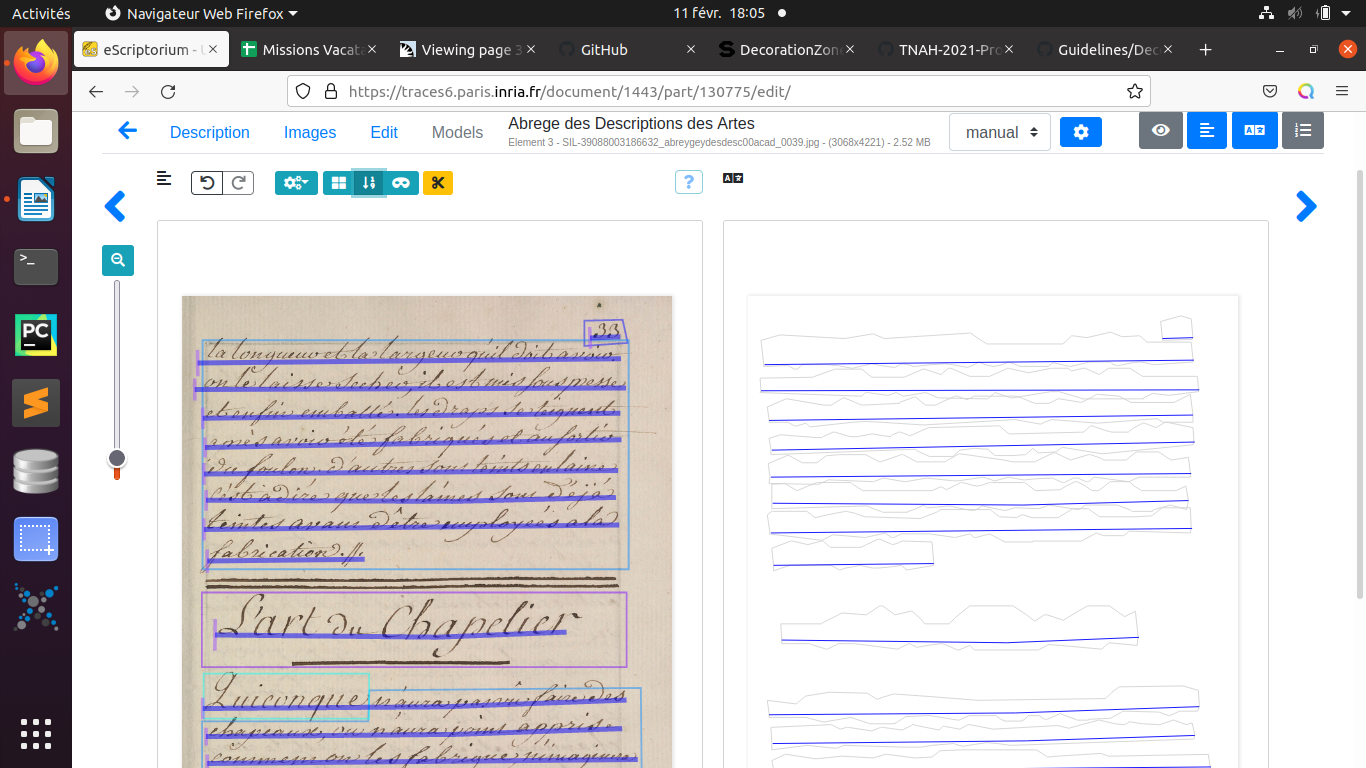 Activités
Navigateur Web Firefox
11 févr. 18:05
eScriptorium - U
Missions Vacata
Viewing page 3
GitHub
DecorationZone
TNAH-2021-Pro
Guidelines/Dec
https://traces6.paris.inria.fr/document/1443/part/130775/edit/
Description
Images
Edit
Models
Abrege des Descriptions des Artes
Element 3 - SIL-39088003186632_abreygeydesdesc00acad_0039.jpg - (3068x4221) - 2.52 MB
manual
?
33
la longueur et la largeur qu'il doit avoir
on le laisse secher, il est mis sous presse
et enfin emballé. les draps se teignent
après avoir été fabriqués et au sortir
du foulon. d'autres sont teints en laine
c'est à dire que les laines sont déjà
teintes avant d'être employées a la
fabrication.//.
L'art du Chapelier
Quiconque n'aura pas vû faire des
chapeaux, ou n'aura point appris
comment on les fabrique n'imaginera